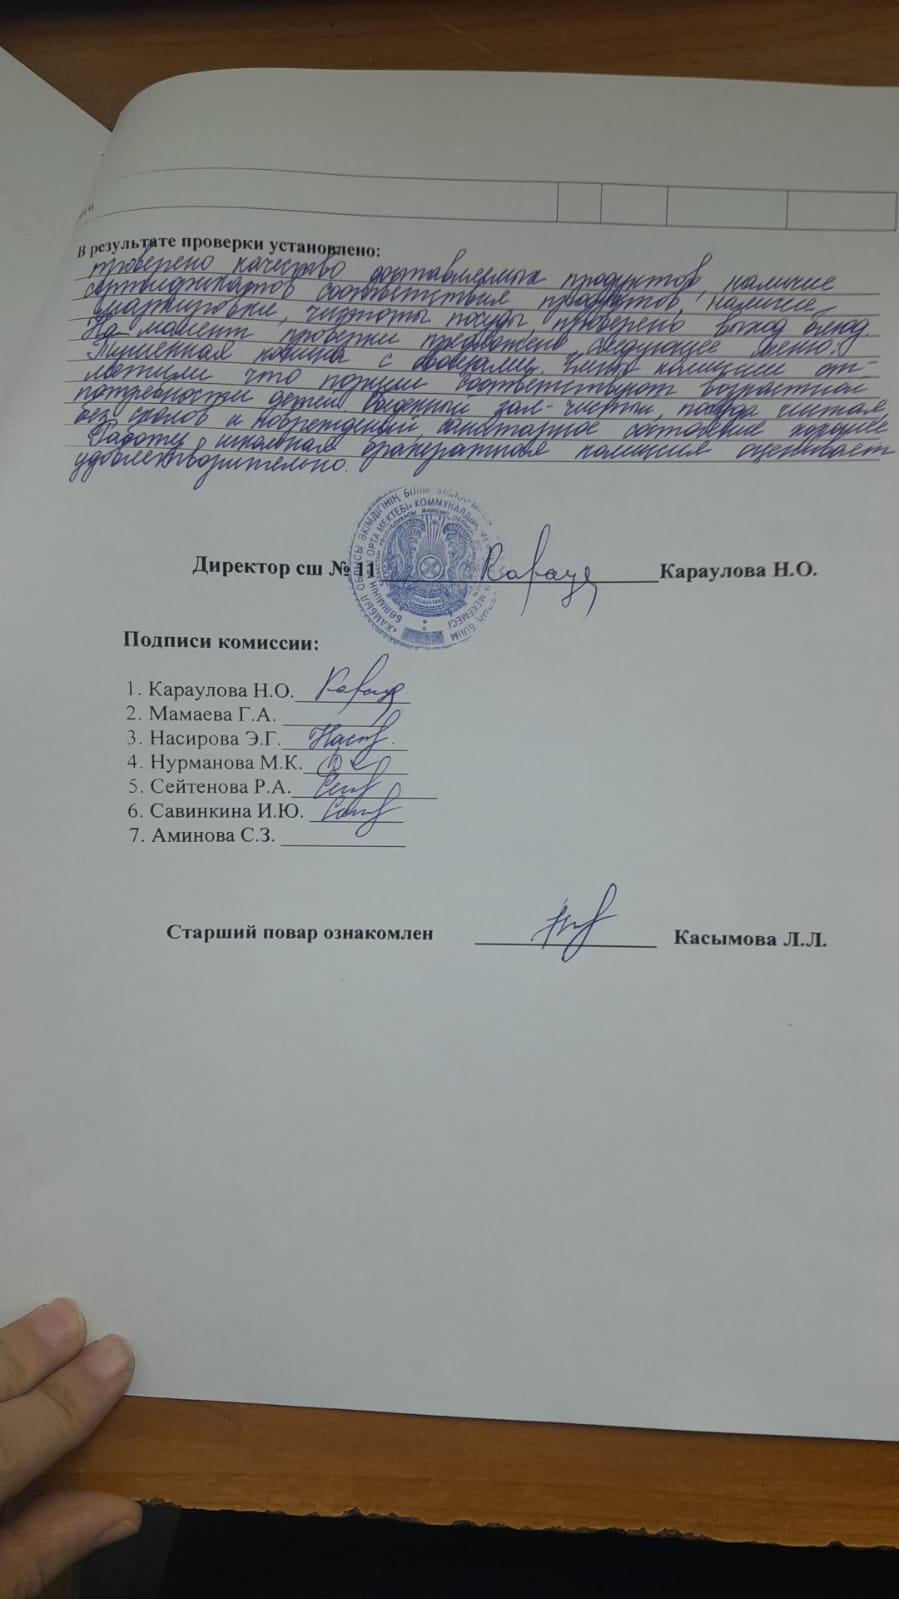 В результате проверки установлено:
проверено качество доставляемых продуктов, наличие
сертификатов соответствия продуктов, наличие
маркировки, чистоты посуды, проверено выход блюд.
На момент проверки предложено следующее меню:
Пшенная с Члены комиссии от-
метили что порции соответствуют возрастным
потребностям детей. Обеденный зал - чистый, посуда чистая,
без сколов и повреждений, санитарное состояние хорошее
Работу школьная бракеражная комиссия оценивает
удовлетворительно.
Директор сш № 11 Караулова Н.О.
Подписи комиссии:
1. Караулова Н.О.
2. Мамаева Г.А.
3. Насирова Э.Г.
4. Нурманова М.К.
5. Сейтенова Р.А.
6. Савинкина И.Ю.
7. Аминова С.З.
Старший повар ознакомлен Касымова Л.Л.